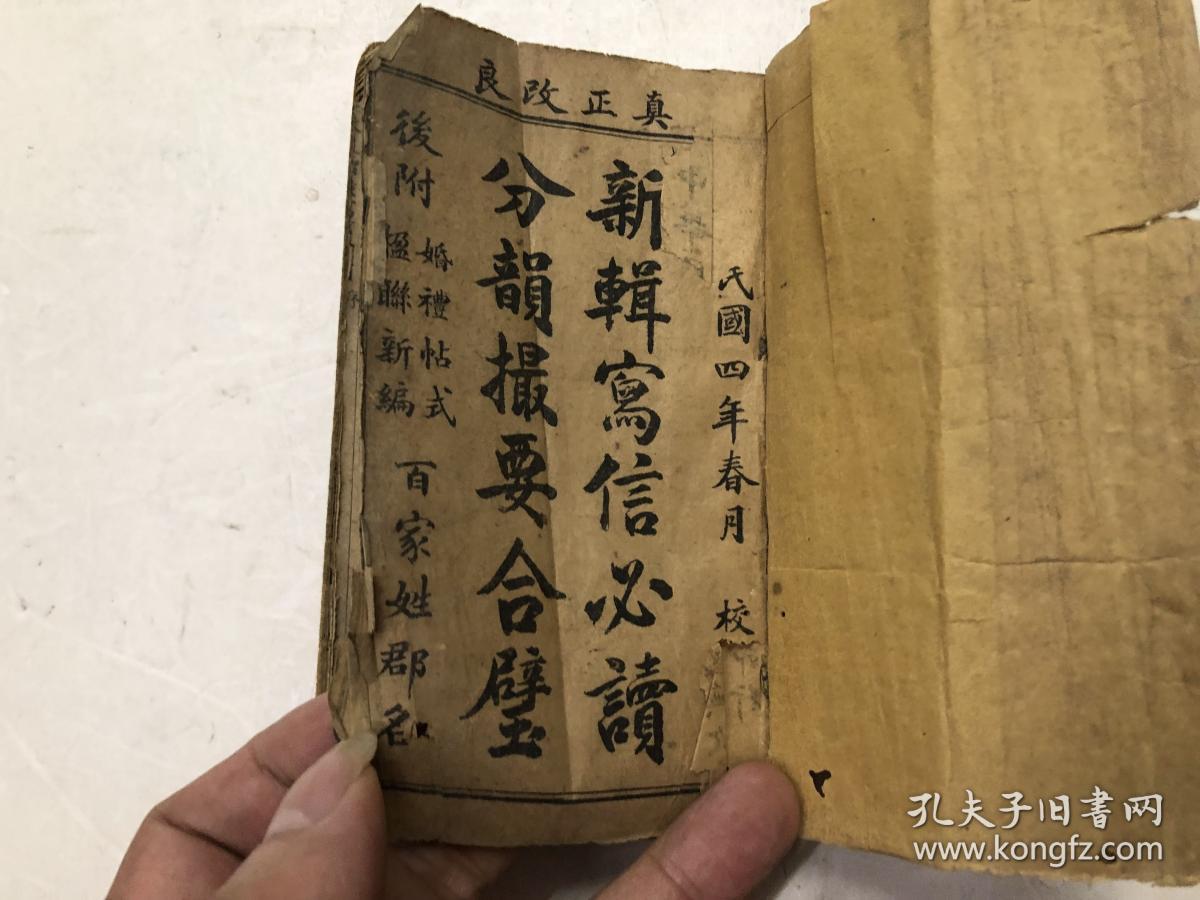 真正改良
民國四年春月 校
新輯寫信必讀
分韻撮要合璧
後附 婚禮帖式 楹聯新編 百家姓郡名
孔夫子旧书网
www.kongfz.com